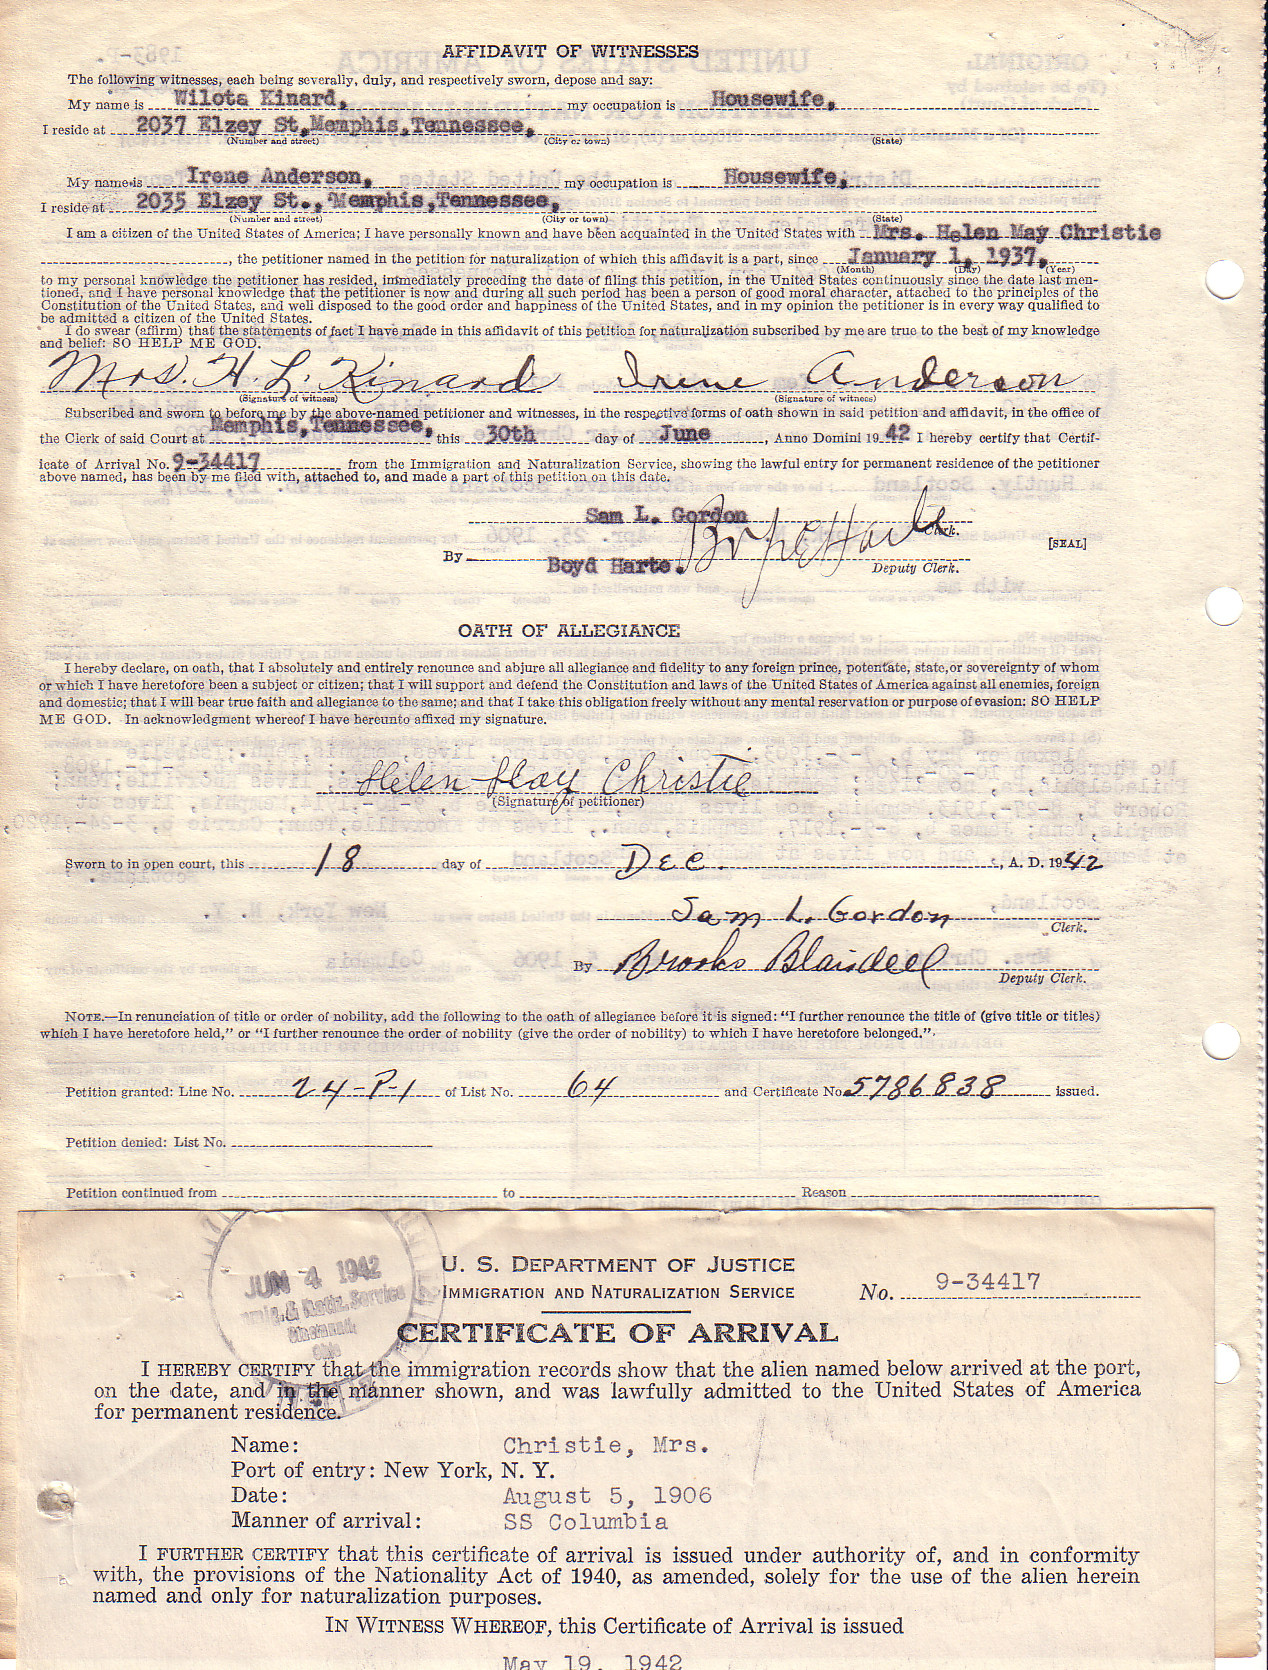 AFFIDAVIT OF WITNESSES
The following witnesses, each being severally, duly, and respectively sworn, depose and say:
My name is Wilota Kinard, my occupation is Housewife,
I reside at 2037 Elzey St,Memphis,Tennessee,
(Number and street) (City or town) (State)
My name is Irene Anderson, my occupation is Housewife,
I reside at 2035 Elzey St., Memphis,Tennessee,
(Number and street) (City or town) (State)
I am a citizen of the United States of America; I have personally known and have been acquainted in the United States with Mrs. Helen May Christie
, the petitioner named in the petition for naturalization of which this affidavit is a part, since January 1, 1937,
(Month) (Day) (Year)
to my personal knowledge the petitioner has resided, immediately preceding the date of filing this petition, in the United States continuously since the date last men-
tioned, and I have personal knowledge that the petitioner is now and during all such period has been a person of good moral character, attached to the principles of the
Constitution of the United States, and well disposed to the good order and happiness of the United States, and in my opinion the petitioner is in every way qualified to
be admitted a citizen of the United States.
I do swear (affirm) that the statements of fact I have made in this affidavit of this petition for naturalization subscribed by me are true to the best of my knowledge
and belief: SO HELP ME GOD.
Mrs. H. L. Kinard Irene Anderson
(Signature of witness) (Signature of witness)
Subscribed and sworn to before me by the above-named petitioner and witnesses, in the respective forms of oath shown in said petition and affidavit, in the office of
the Clerk of said Court at Memphis,Tennessee, this 30th day of June, Anno Domini 1942 I hereby certify that Certif-
icate of Arrival No. 9-34417 from the Immigration and Naturalization Service, showing the lawful entry for permanent residence of the petitioner
above named, has been by me filed with, attached to, and made a part of this petition on this date.
Sam L. Gordon
Clerk.
[SEAL]
By Boyd Harte. Boyd Harte
Deputy Clerk.
OATH OF ALLEGIANCE
I hereby declare, on oath, that I absolutely and entirely renounce and abjure all allegiance and fidelity to any foreign prince, potentate, state, or sovereignty of whom
or which I have heretofore been a subject or citizen; that I will support and defend the Constitution and laws of the United States of America against all enemies, foreign
and domestic; that I will bear true faith and allegiance to the same; and that I take this obligation freely without any mental reservation or purpose of evasion: SO HELP
ME GOD. In acknowledgment whereof I have hereunto affixed my signature.
Helen Hay Christie
(Signature of petitioner)
Sworn to in open court, this 18 day of Dec. , A. D. 1942
Sam L. Gordon
Clerk.
By Brooks Blaisdell
Deputy Clerk.
NOTE.—In renunciation of title or order of nobility, add the following to the oath of allegiance before it is signed: “I further renounce the title of (give title or titles)
which I have heretofore held,” or “I further renounce the order of nobility (give the order of nobility) to which I have heretofore belonged.”
Petition granted: Line No. 24-P-1 of List No. 64 and Certificate No. 5786838 issued.
Petition denied: List No.
Petition continued from to Reason
JUN 4 1942
Immig. & Natz. Service
Cincinnati,
Ohio
U. S. DEPARTMENT OF JUSTICE
IMMIGRATION AND NATURALIZATION SERVICE
No. 9-34417
CERTIFICATE OF ARRIVAL
I HEREBY CERTIFY that the immigration records show that the alien named below arrived at the port,
on the date, and in the manner shown, and was lawfully admitted to the United States of America
for permanent residence.
Name: Christie, Mrs.
Port of entry: New York, N. Y.
Date: August 5, 1906
Manner of arrival: SS Columbia
I FURTHER CERTIFY that this certificate of arrival is issued under authority of, and in conformity
with, the provisions of the Nationality Act of 1940, as amended, solely for the use of the alien herein
named and only for naturalization purposes.
IN WITNESS WHEREOF, this Certificate of Arrival is issued
May 19, 1942